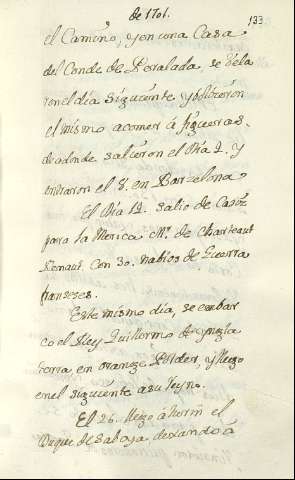 de 1701.
133
el Camino, y en una Casa
del Conde de Peralada, se vela
ron el día siguiente, y bolvieron
el mismo a comer á figueras.
de adonde salieron el día 4. y
entraron el 8. en Barzelona.
El día 12. salio de Cadiz
para la America Mr. de Chasteaut
Renaut. Con 30. nabios de Guerra
franzeses.
Este mismo día, se embar
co el Rey Guillermo de Yngla
terra, en orange Polder, y llego
en el siguiente a su Reyno.
El 26. llego a Turin el
Duque de Saboya, dexando á